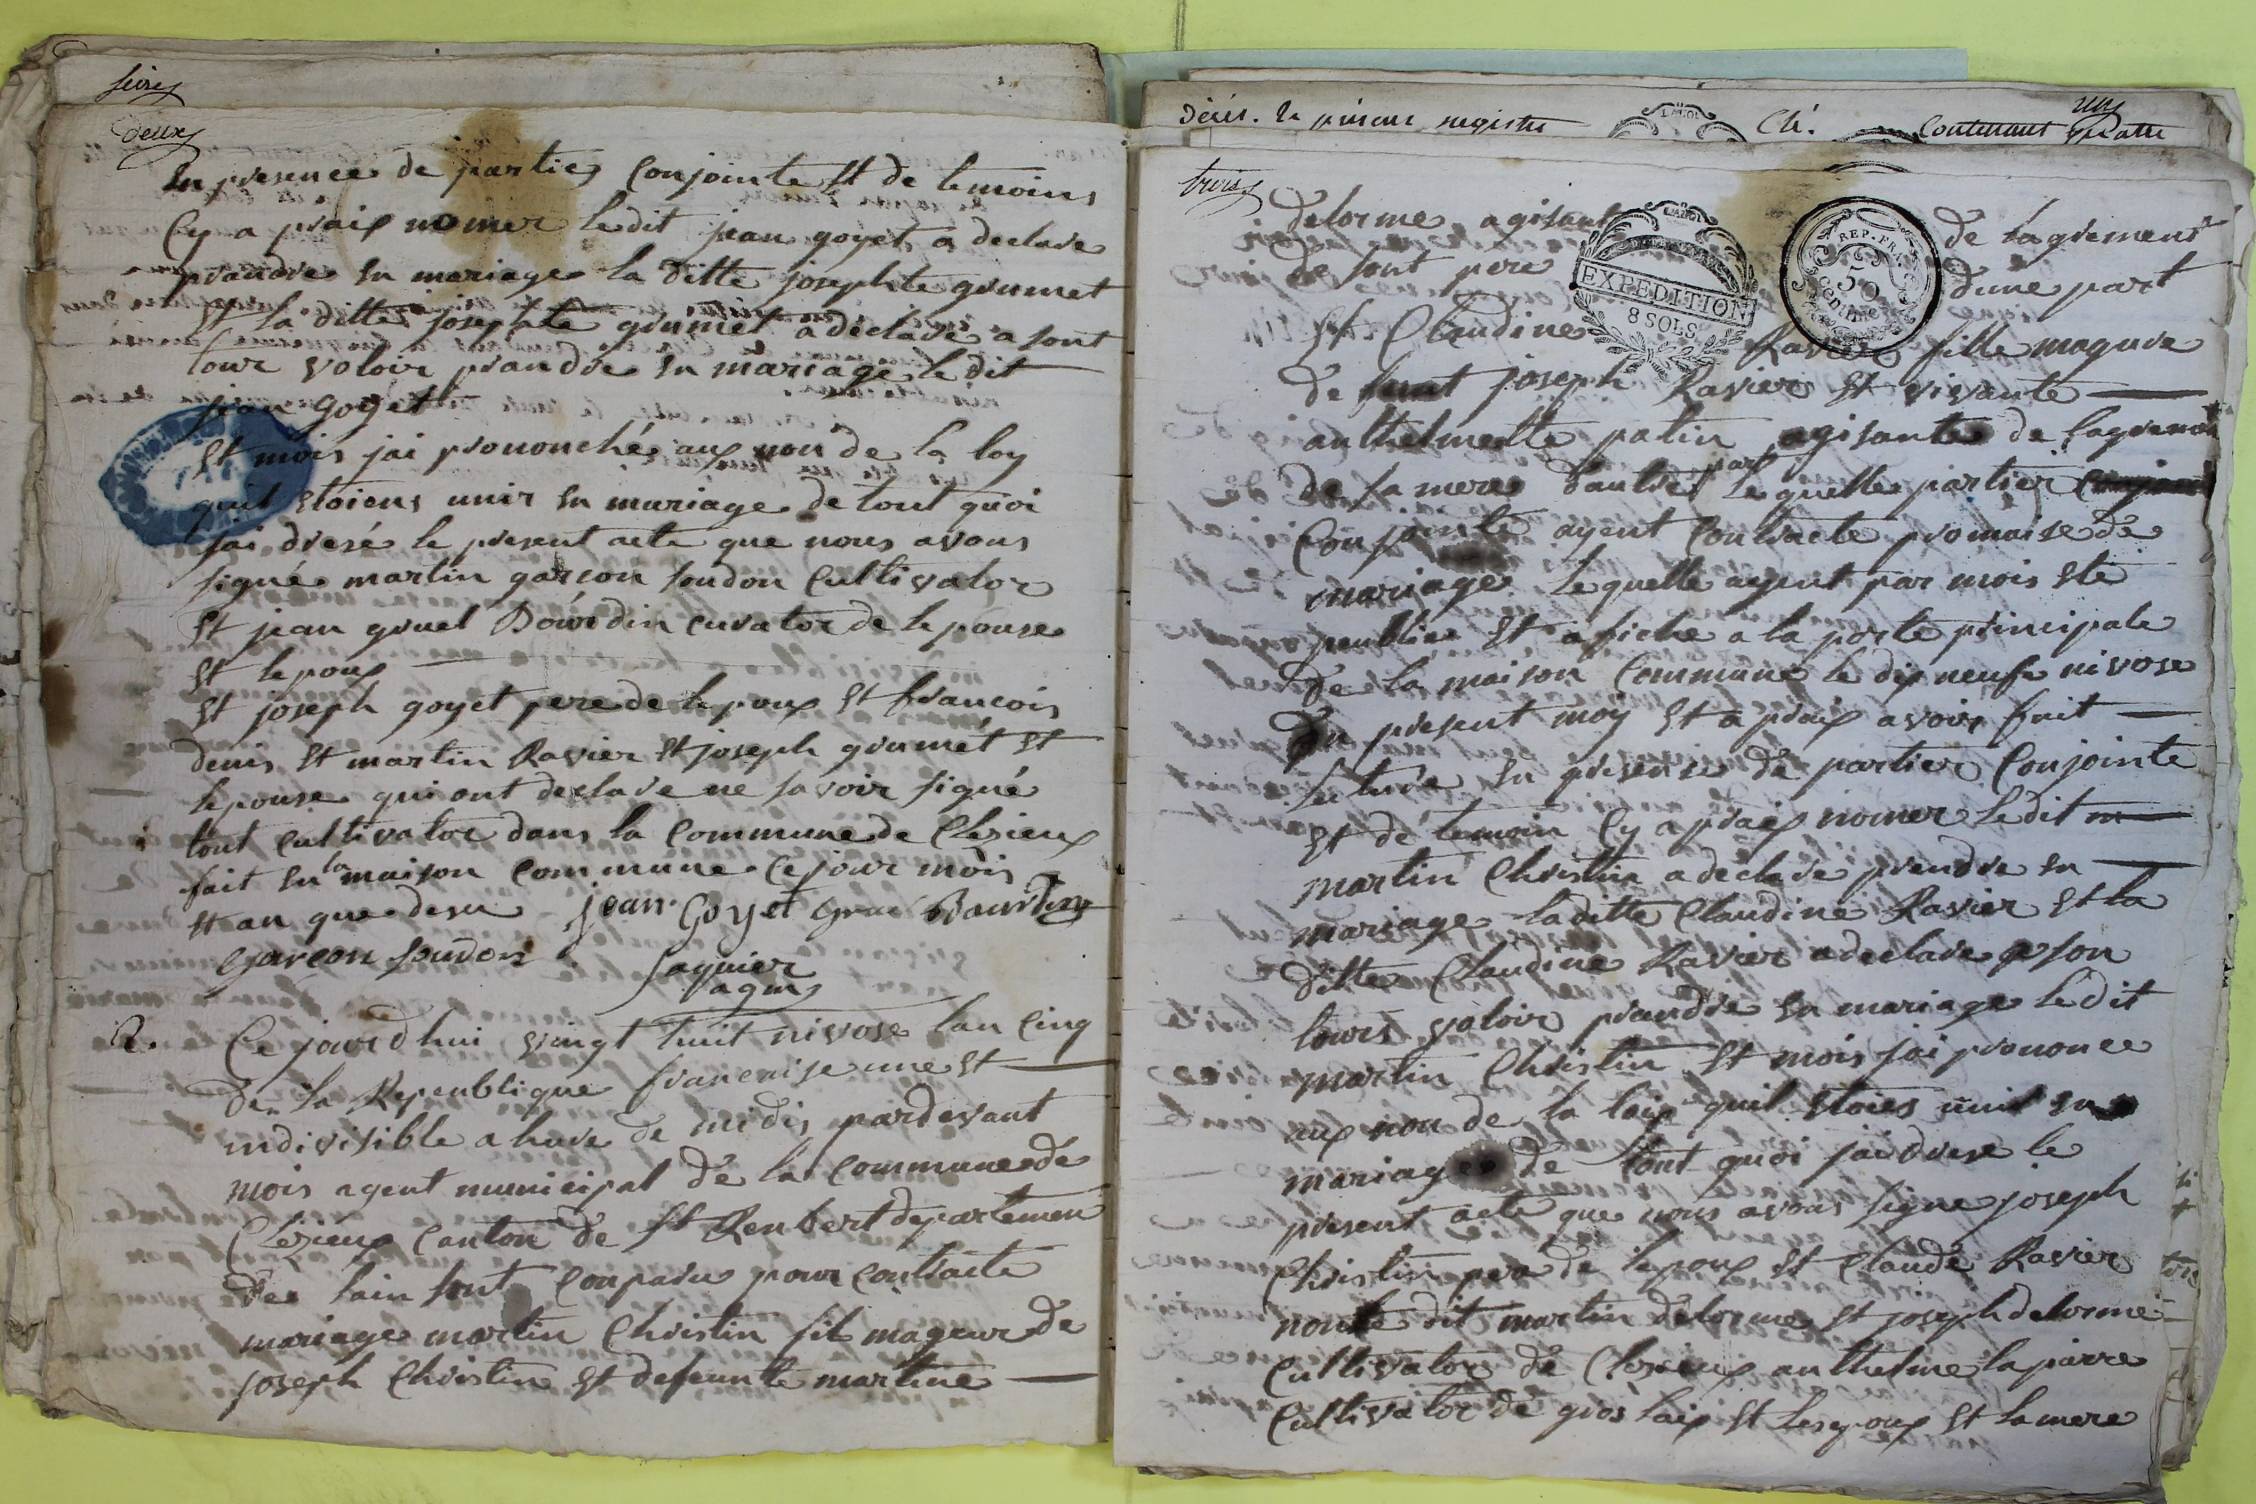 deux
En presence de parties Conjointe Et de temoins
Cy a praix nomer ledit jean goyet a declare
prandre En mariage la ditte josephte grumet
Et la ditte josephte grumet a declare a sont
tour voloir prandre En mariage le dit
jean goyet
Et mois jai prononché aux non de la loy
quil Etoiens unir En mariage de tout quoi
jai dresé le present acte que nous avons
signé martin garcon foudon Cultivator
Et jean gruel Bourdin curator de lepouse
Et lepoux
Et joseph goyet pere de lepoux Et francois
denis Et martin Ravier Et joseph grumet Et
lepouse qui ont declare ne savoir signé
tout cultivator dans la Commune de Clezieux
fait En la maison Commune Ce jour mois
Et an que desu jean Goyet Gruel Bourdin
Garcon foudon
2. Ce jourdhui vingt huit nivose lan Cinq
de la Repeublique francaise une Et
indivisible a heure de midis pardevant
mois agent municipal de la Commune de
Clezieux Canton de St Renbert departemen
de lain sont Conparu pour Contracte
mariage martin Christin fil mageur de
joseph Christin Et defeunte martine
Décés. Le présent registre
Cté.
Contenant quatre
trois
delorme agisant de lagrement
de sont pere dune part
EXPEDITION
8 SOLS
REP. FRA.
50
centimes
Et Claudine Ravier fille mageure
de joseph Ravier Et vivante
anthelmette patin agisante de lagremen
de sa mere dautre part lequelle partier
Conjointe ayent Contracte promaise de
mariage lequelle ayent par mois Ete
peublier Et afiche a la porte principale
de la maison Commune le dix neufe nivose
du present moy Et a praix avoir fait
lecture En presense de partier Conjointe
Et de temoin Cy a praix nomer ledit
martin Christin a declare prendre En
mariage laditte Claudine Ravier Et la
ditte Claudine Ravier a declare a son
tours voloir prandre En mariage ledit
martin Christin Et mois jai prononce
aux non de la loix quil Etoies unir En
mariage de tout quoi jai drese le
present acte que nous avons signe joseph
Christin pere de lepoux Et Claude Ravier
dit martin delorme Et joseph delorme
Cultivator de Clezieux anthelme lapierre
Cultivator de gros laix Et les epoux Et la mere